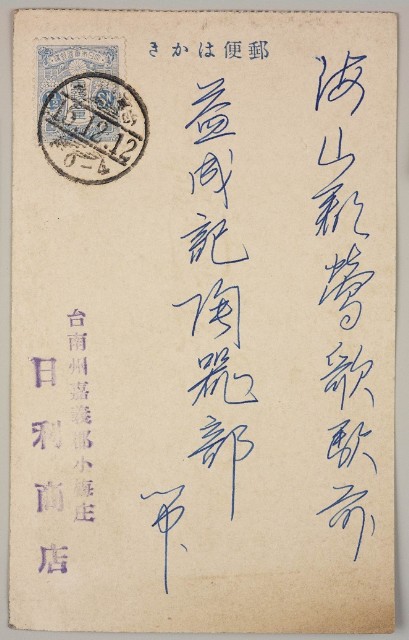 郵便はかき
海山郡鶯歌駅前
益成記陶器部
台南州嘉義郡小梅庄
日利商店
12.12
0-4